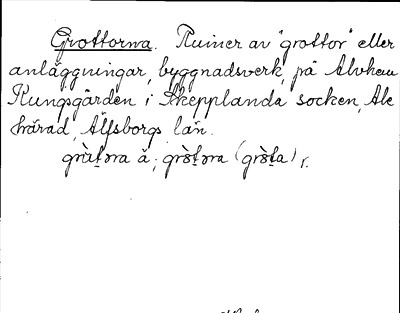 Grottorna. Ruiner av "grottor" eller
anläggningar, byggnadsverk, på Alvhem
Kungsgården i Skepplanda socken, Ale
härad, Älfsborgs län.
grùtəra ä.; gròtəra (gròta) r.